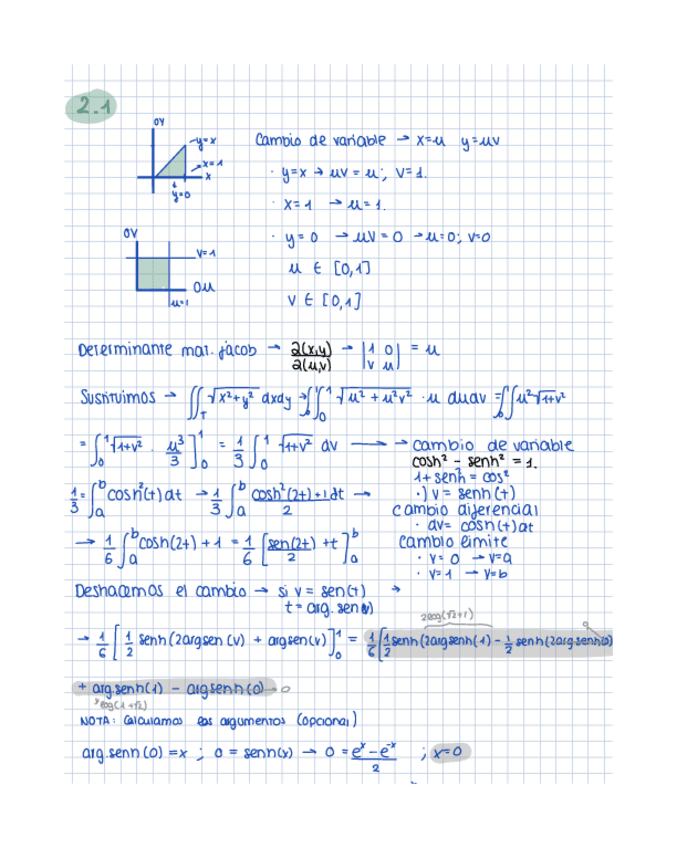 2.1
OY
y=x
x=1
x
y=0
Cambio de variable → x=u y=uv
· y=x → uv = u; v=1.
· x=1 → u=1.
· y=0 → uv=0 → u=0; v=0
u ∈ [0,1]
v ∈ [0,1]
OV
v=1
OU
u=1
Determinante mat. jacob → ∂(x,y)/∂(u,v) → |1 0; v u| = u
Sustituimos → ∬_T √x²+y² dxdy → ∫₀¹∫₀¹ √u²+u²v² · u dudv = ∫∫ u²√1+v²
= ∫₀¹ √1+v² · u³/3 ]₀¹ = 1/3 ∫₀¹ √1+v² dv → → cambio de variable
cosh² - senh² = 1.
1+senh² = cos²
·) v = senh(t)
cambio diferencial
· dv = cosh(t)dt
cambio límite
· v=0 → v=a
· v=1 → v=b
1/3 = ∫ₐᵇ cosh²(t)dt → 1/3 ∫ₐᵇ cosh²(2t)+1dt/2 →
→ 1/6 ∫ₐᵇ cosh(2t)+1 = 1/6 [sen(2t)/2 + t]ₐᵇ
Deshacemos el cambio → si v = sen(t) →
t = arg. sen(v)
2log(√2+1)
→ 1/6 [1/2 senh(2argsen(v) + argsen(v)]₀¹ = 1/6 [1/2 senh(2argsenh(1) - 1/2 senh(2argsenh(0)
+ arg.senh(1) - argsenh(0) → 0
log(1+√2)
NOTA: calculamos los argumentos (opcional)
arg.senh(0) = x ; 0 = senh(x) → 0 = eˣ-e⁻ˣ/2 ; x=0